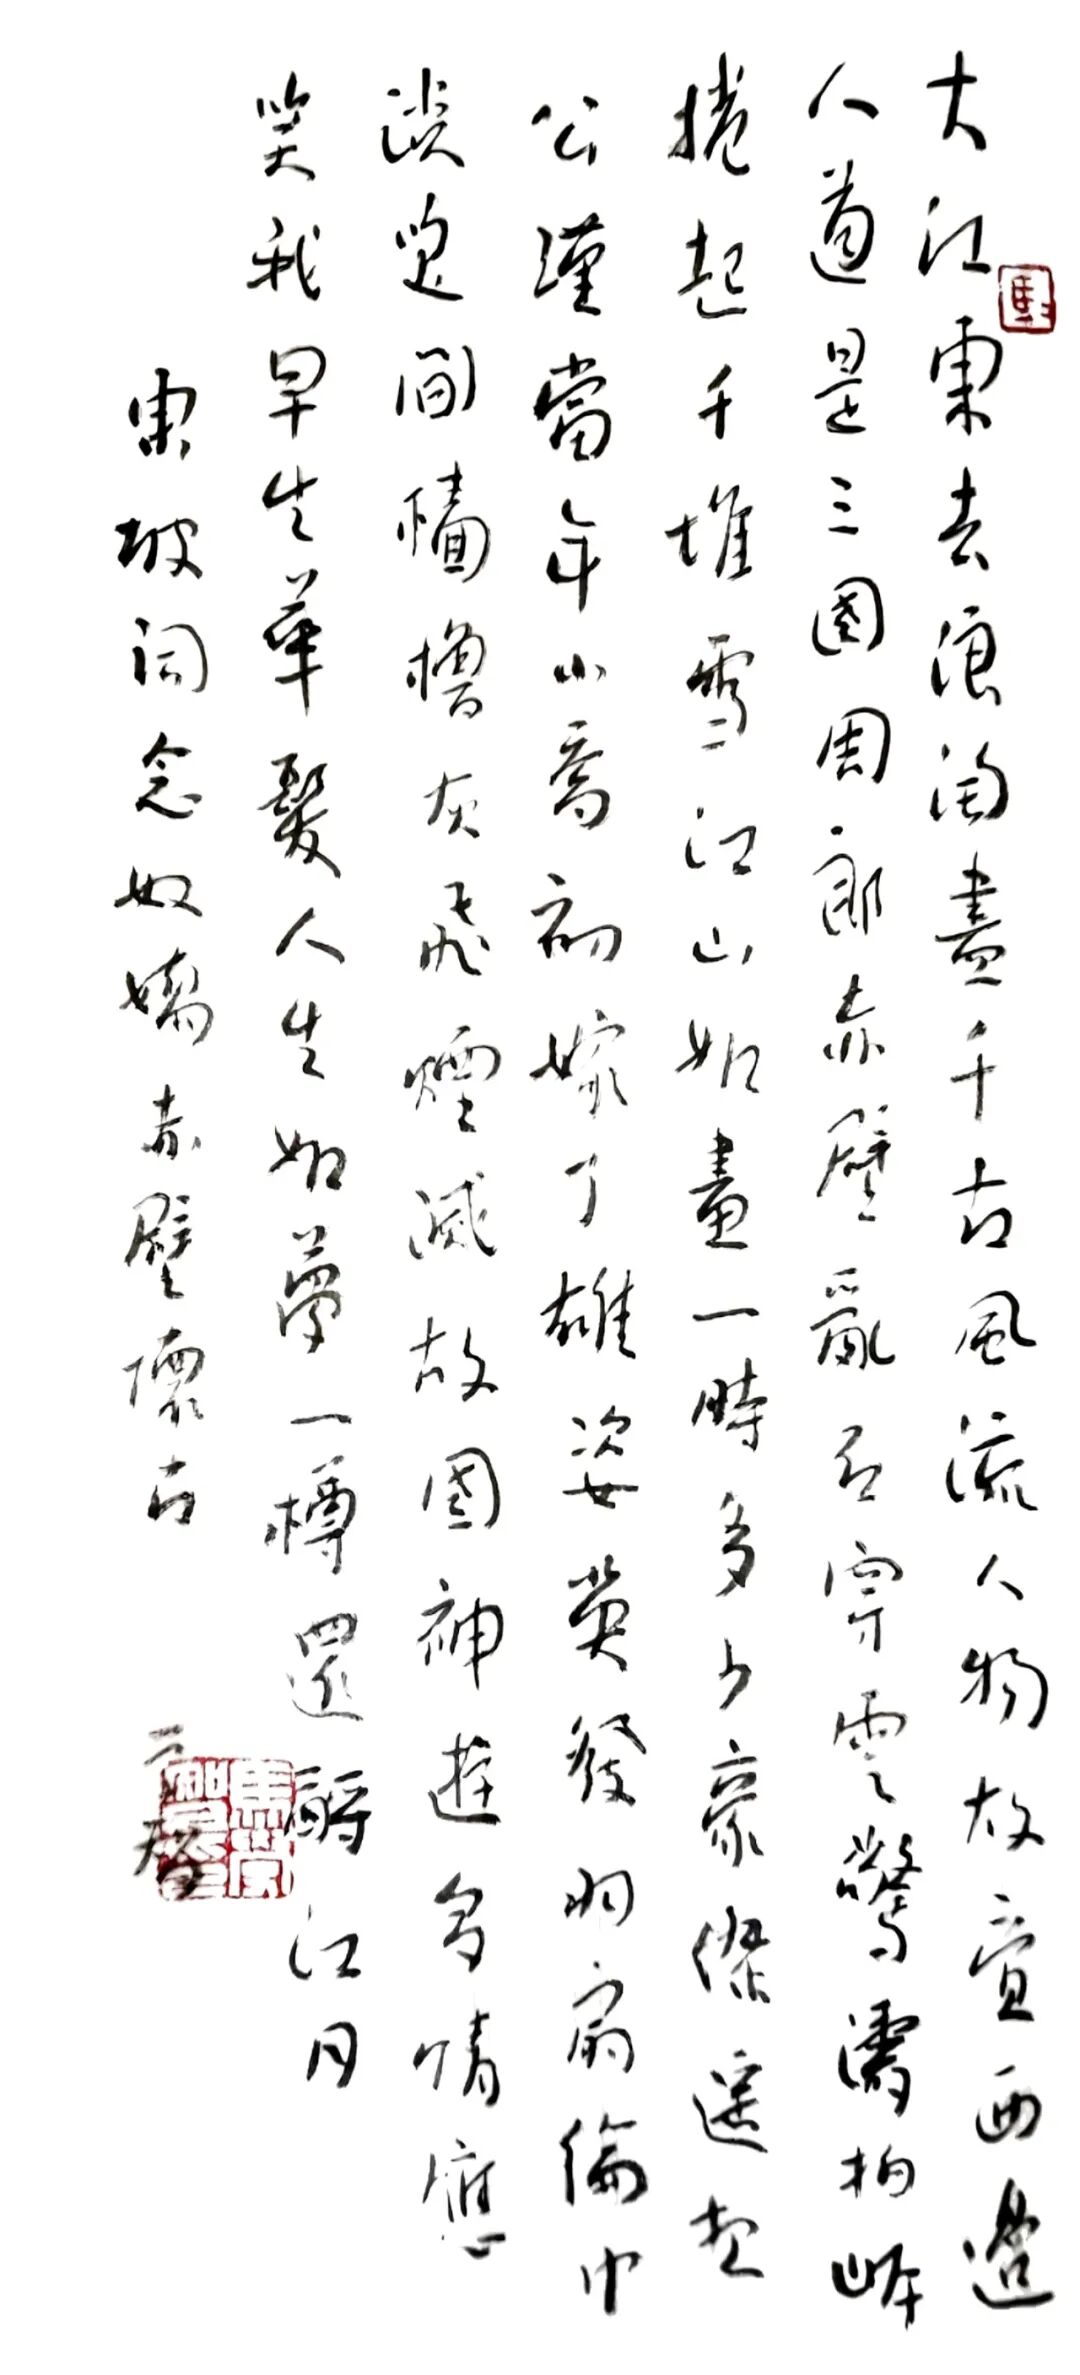 大江東去浪淘盡千古風流人物故壘西邊
人道是三國周郎赤壁亂石穿雲驚濤拍岸
捲起千堆雪江山如畫一時多少豪傑遙想
公瑾當年小喬初嫁了雄姿英發羽扇綸巾
談笑間檣櫓灰飛煙滅故國神遊多情應
笑我早生華髮人生如夢一樽還酹江月
東坡詞念奴嬌赤壁懷古